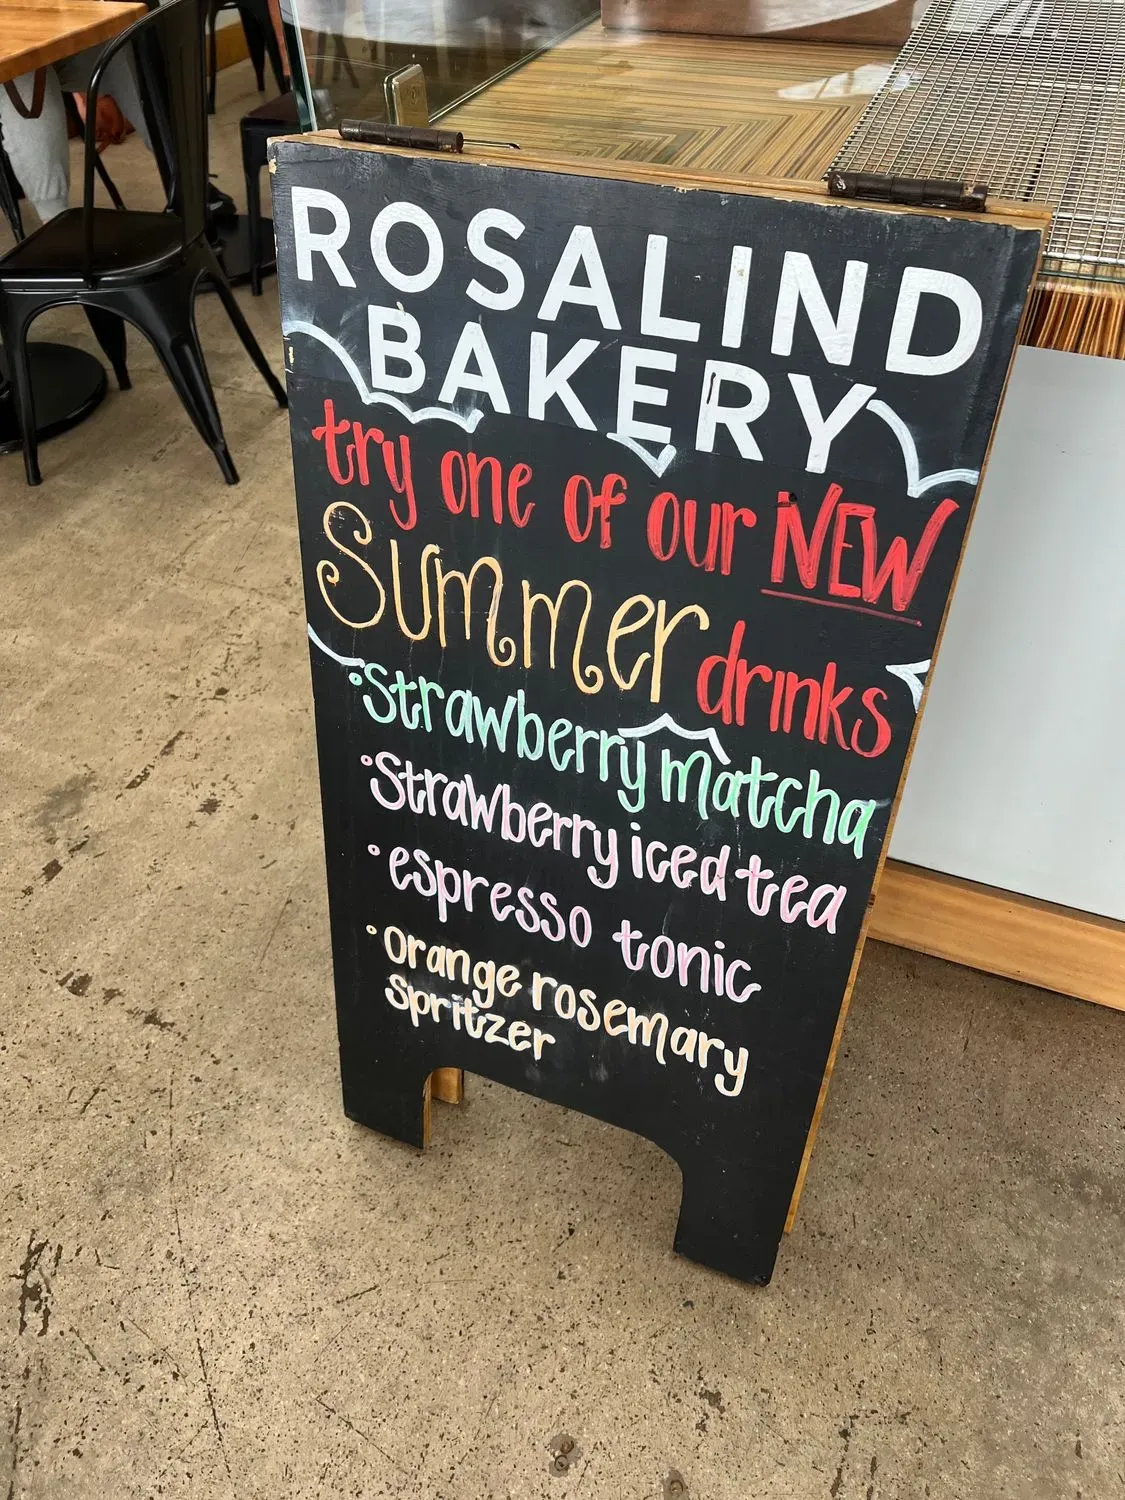 ROSALIND
BAKERY
try one of our NEW
Summer drinks
• Strawberry matcha
• Strawberry iced tea
• espresso tonic
• Orange rosemary
Spritzer